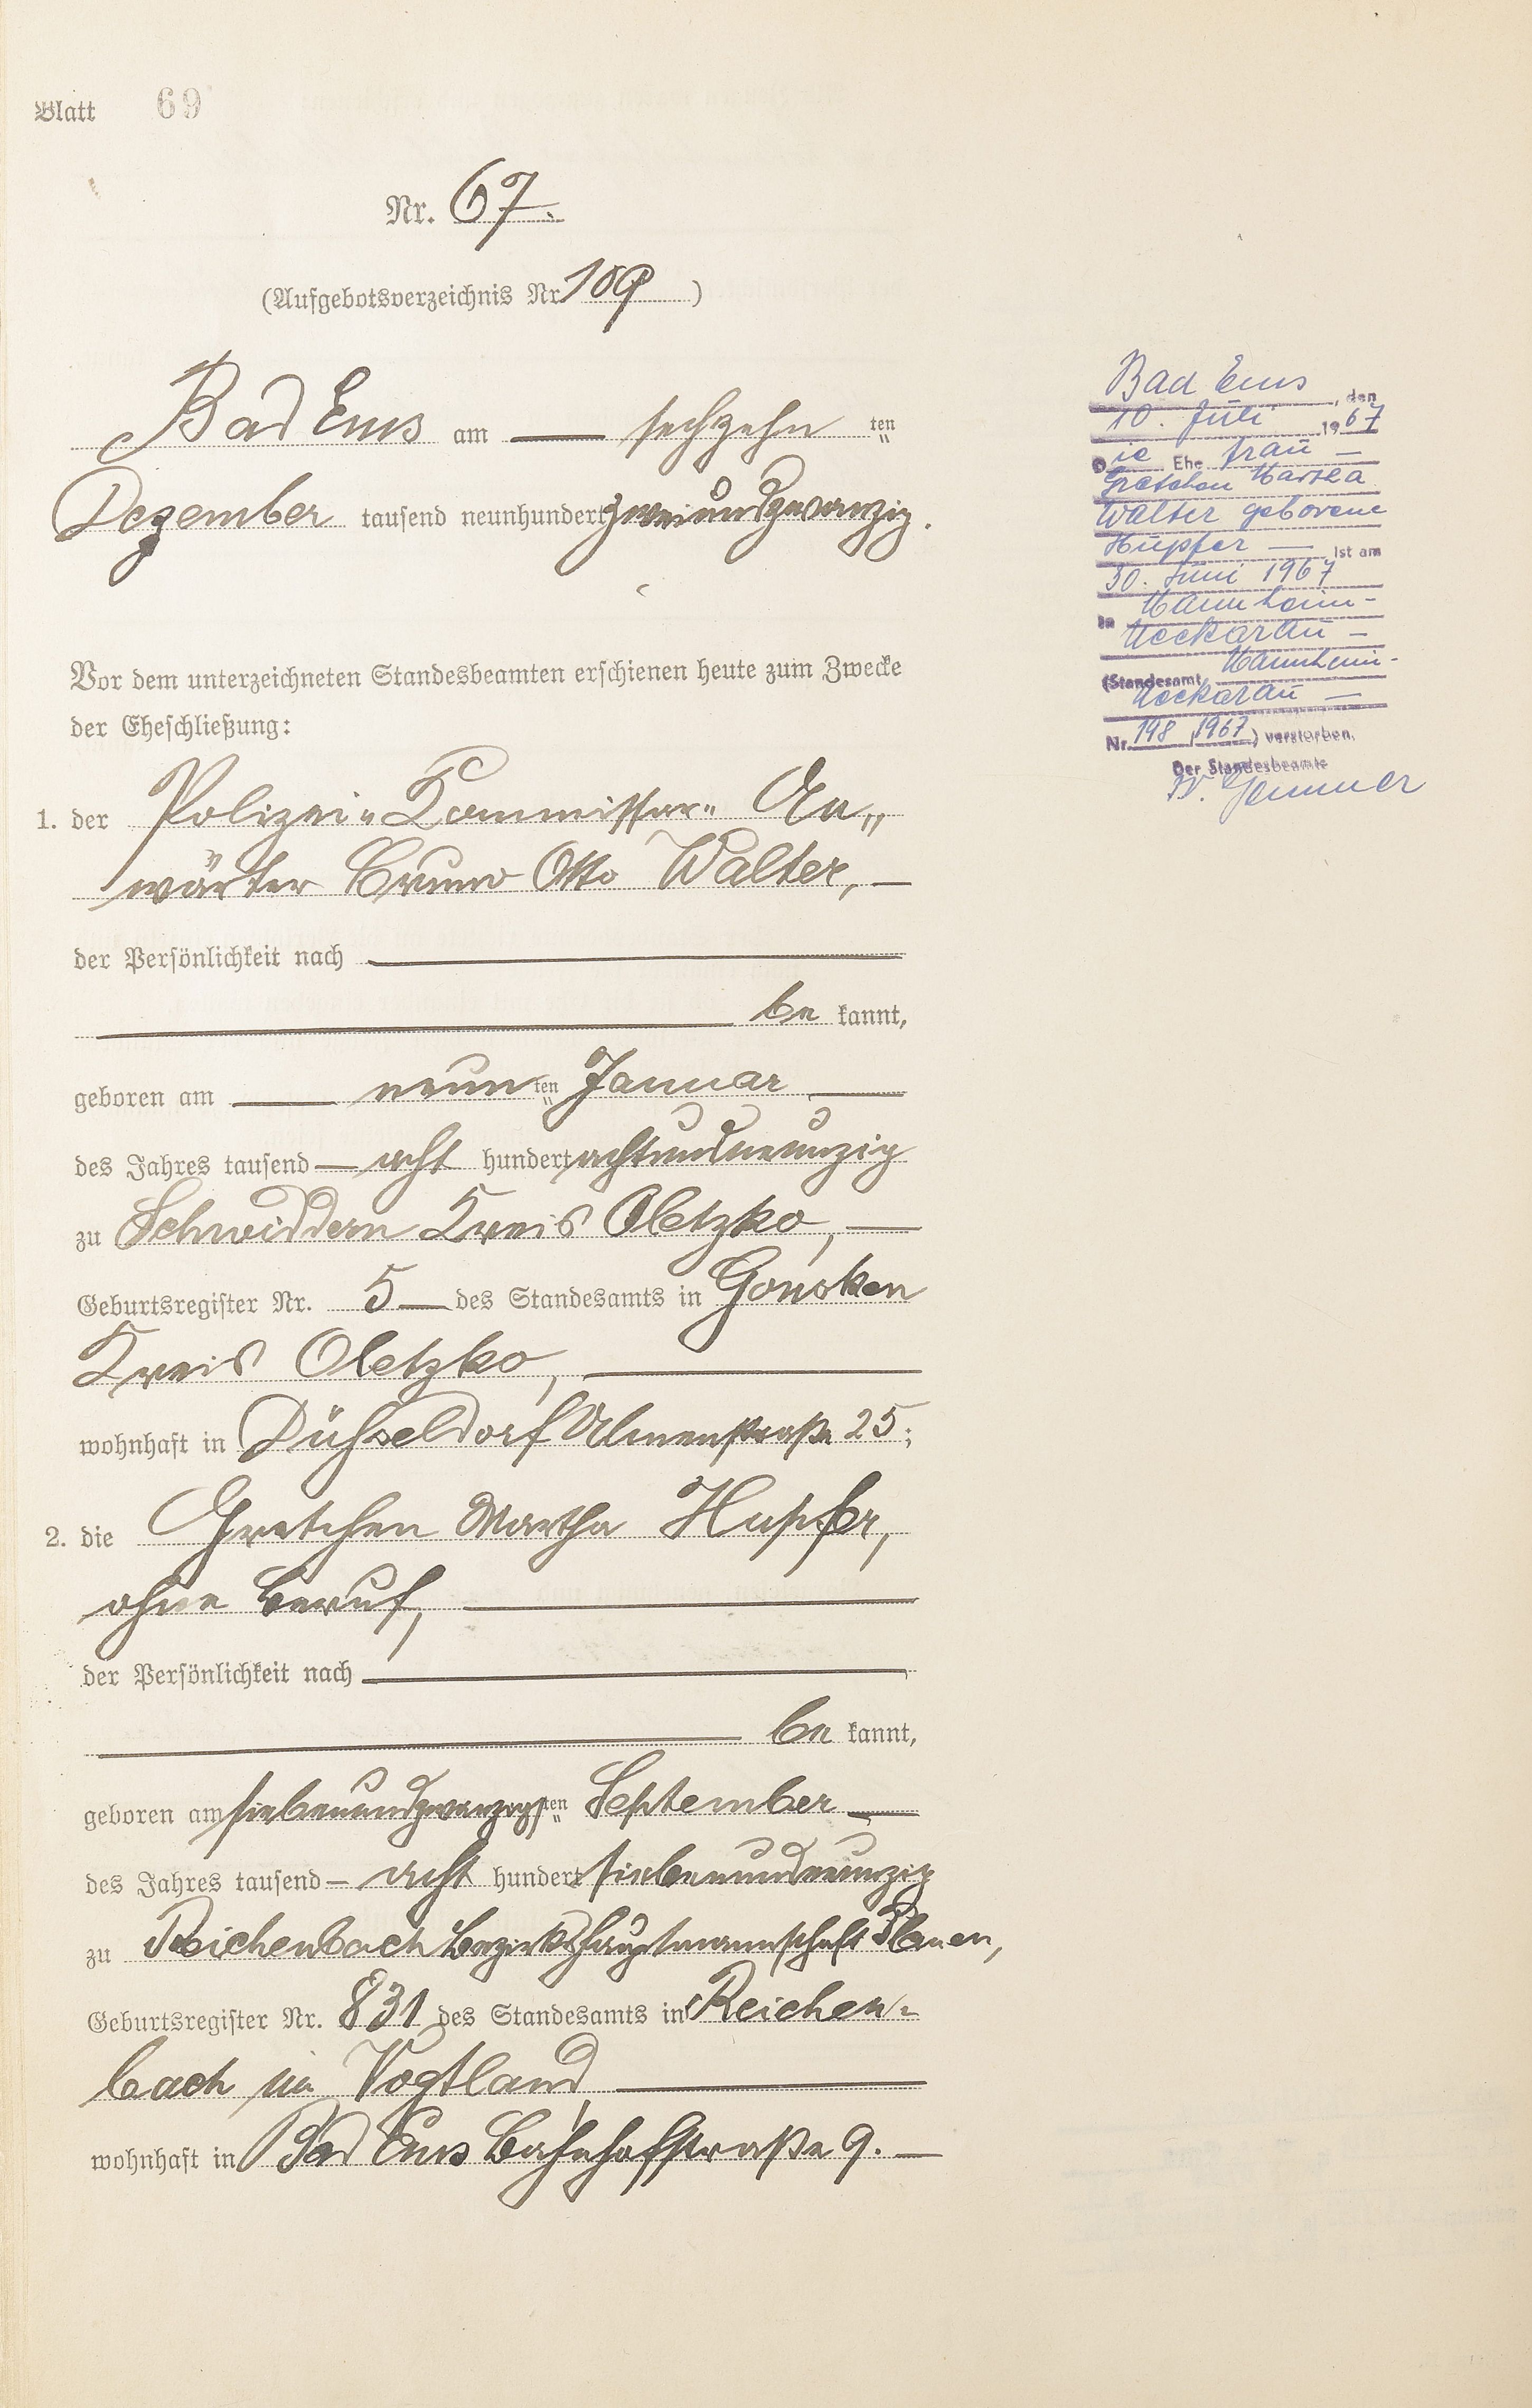 Blatt 69
Nr. 67.
(Aufgebotsverzeichnis Nr. 109)
Bad Ems am — sechzehn ten
Dezember tausend neunhundert zweiundzwanzig.
Vor dem unterzeichneten Standesbeamten erschienen heute zum Zwecke
der Eheschließung:
1. der Polizei-Commissar- An-
wärter Bruno Otto Walter, —
der Persönlichkeit nach —
— be kannt,
geboren am — neun ten Januar —
des Jahres tausend — acht hundert achtundneunzig
zu Schwiddern Kreis Oletzko, —
Geburtsregister Nr. 5 — des Standesamts in Gonsken
Kreis Oletzko, —
wohnhaft in Düsseldorf Ulmenstraße 25;
2. die Gretchen Martha Hupfer,
ohne Beruf, —
der Persönlichkeit nach —
— be kannt,
geboren am siebenundzwanzigsten September —
des Jahres tausend — acht hundert siebenundneunzig
zu Reichenbach Bezirkshauptmannschaft Plauen,
Geburtsregister Nr. 831 des Standesamts in Reichen-
bach im Vogtland, —
wohnhaft in Bad Ems Bahnhofstraße 9. —
Bad Ems, den
10. Juli 1967
Die Ehe frau —
Gretchen Martha
Walter geborene
Hupfer — ist am
30. Juni 1967
in Mannheim-
Neckarau —
(Standesamt Mannheim-
Neckarau —
Nr. 198, 1967) verstorben.
Der Standesbeamte